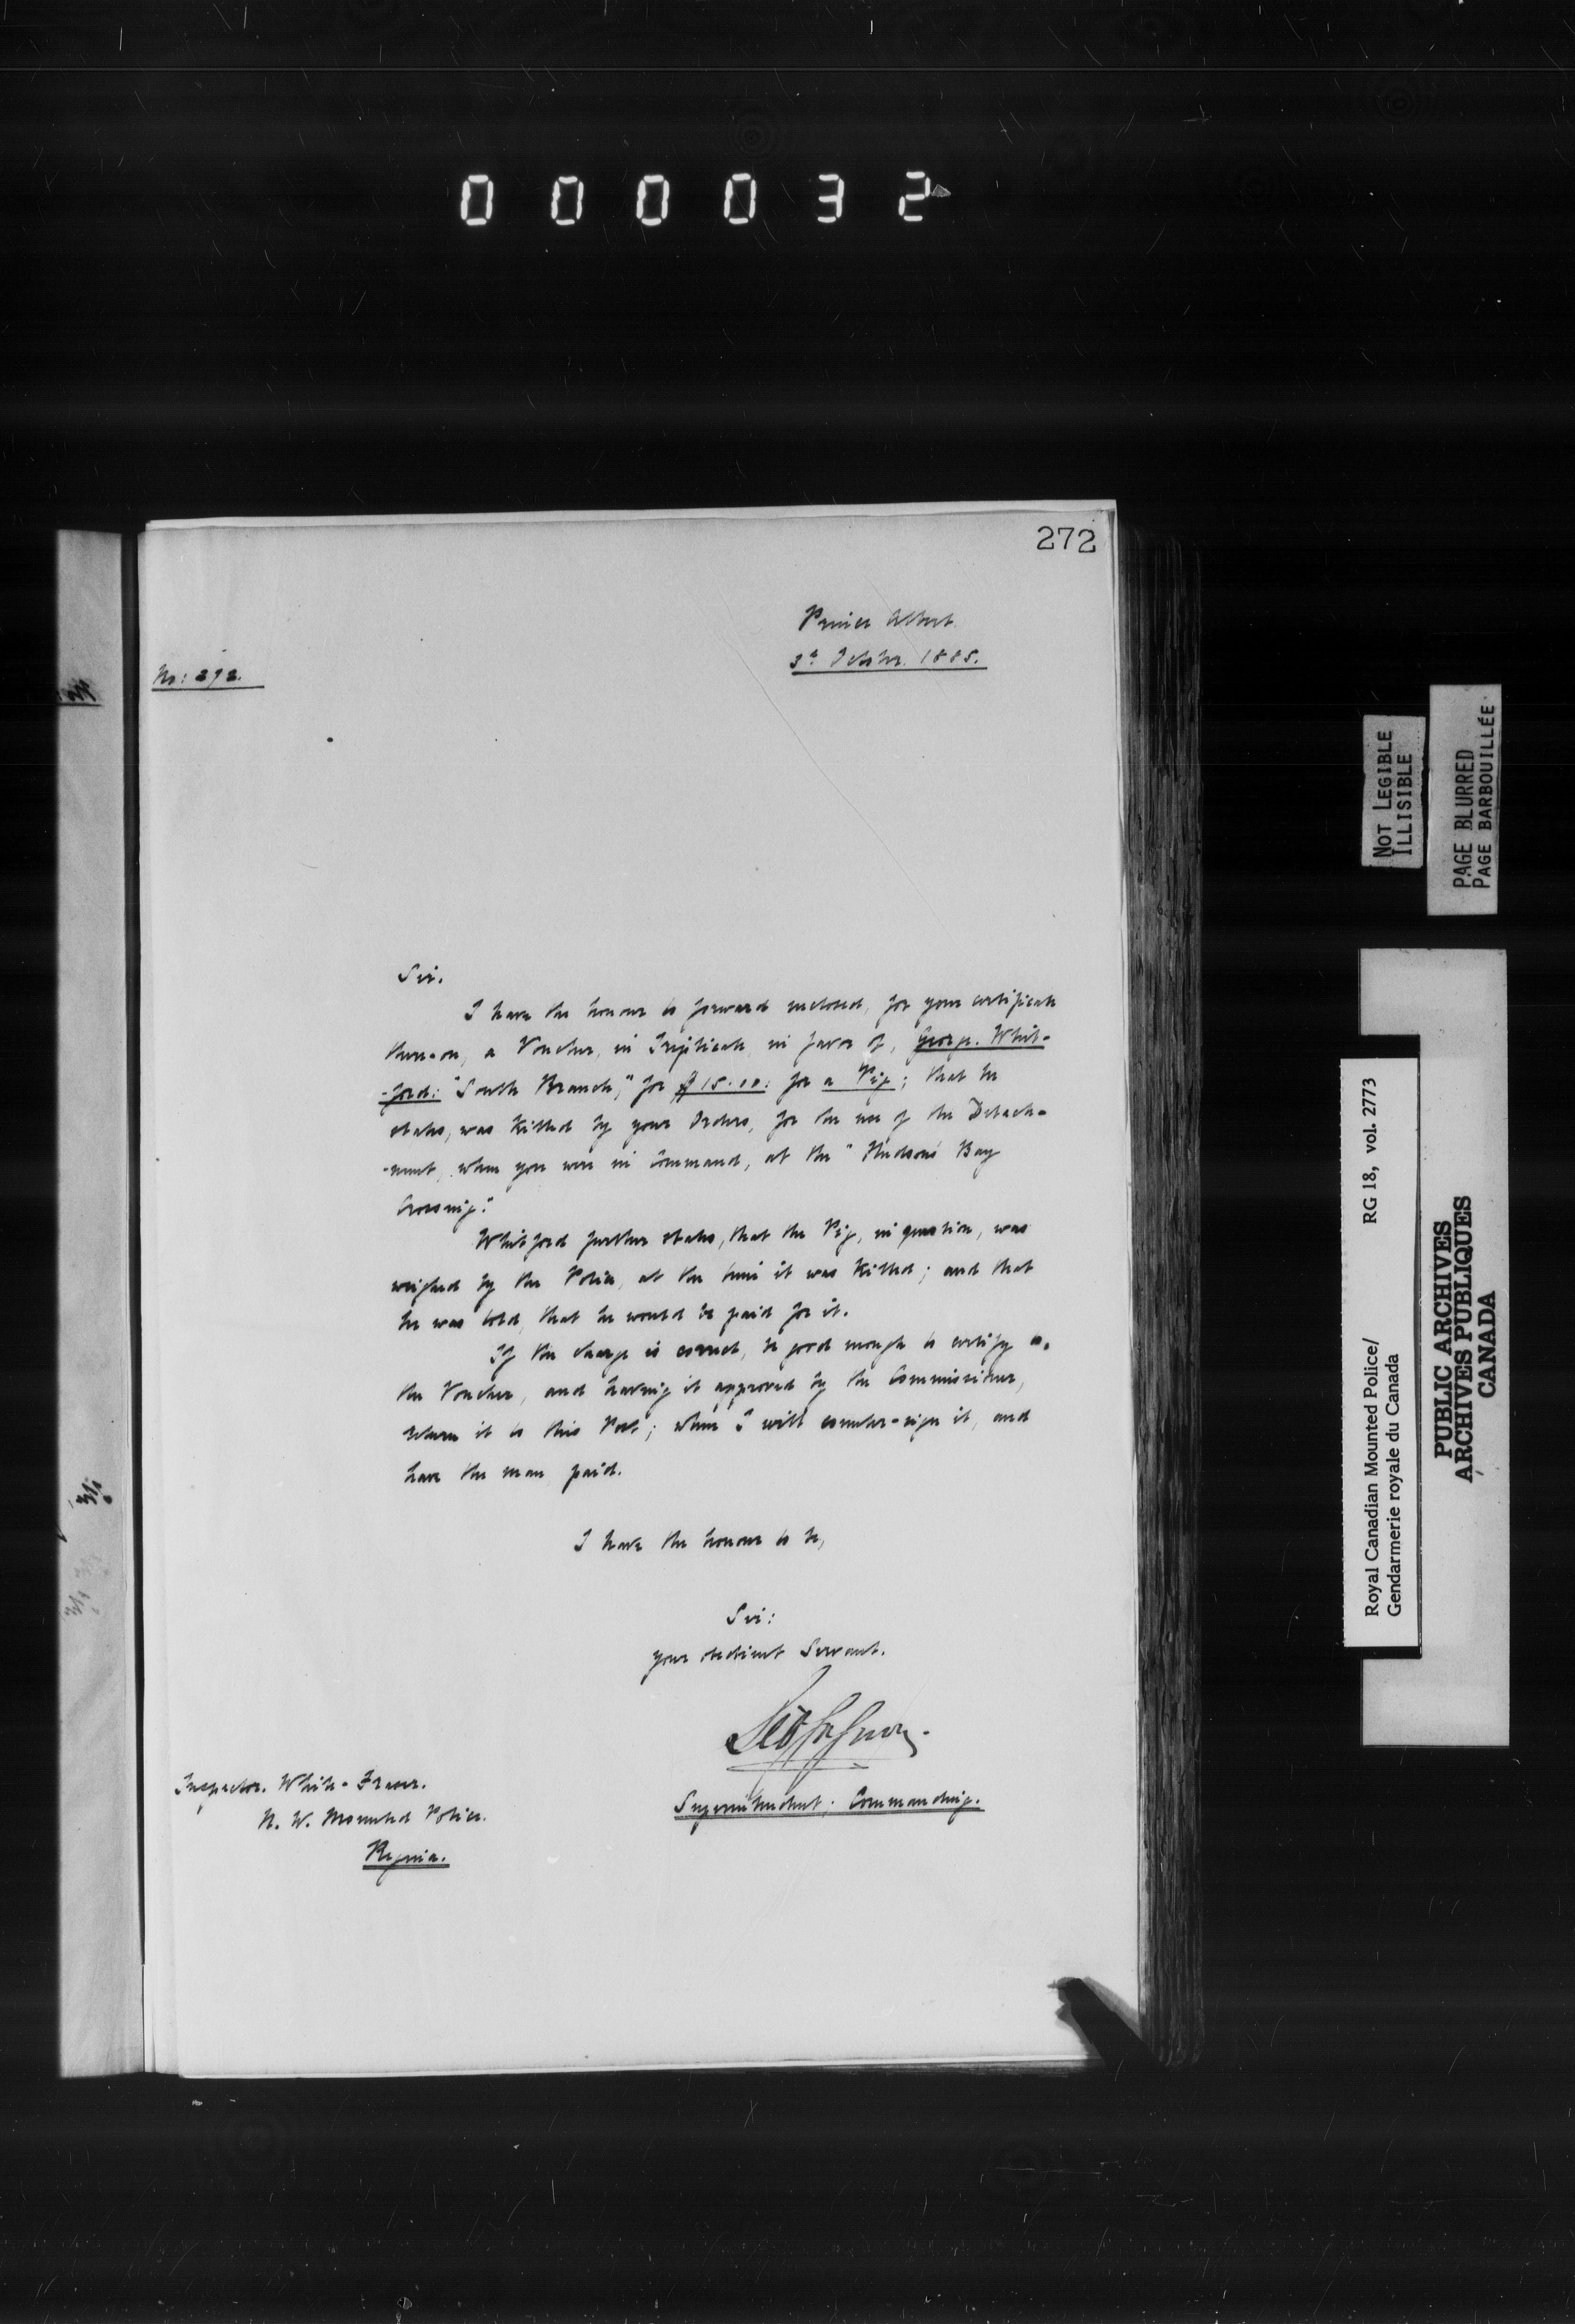 000032
272
Prince Albert.
3d October. 1885.
No: 292.
Sir.
I have the honour to forward enclosed, for your certificate
there-on, a Voucher, in Triplicate, in favor of, George. Whit-
-ford: "South Branch," for $15.00: for a Pig; that he
states, was killed by your Orders, for the use of the Detach-
-ment, when you were in Command, at the "Hudsons Bay
Crossing."
Whitford further states, that the Pig, in question, was
weighed by the Police, at the time it was killed; and that
he was told, that he would be paid for it.
If the charge is correct, be good enough to certify to,
the Voucher, and having it approved by the Commissioner,
return it to this Post; when I will counter-sign it, and
have the man paid.
I have the honour to be,
Sir:
your obedient Servant.
Superintendent; Commanding.
Inspector. White-Fraser.
N. W. Mounted Police.
Regina.
NOT LEGIBLE
ILLISIBLE
PAGE BLURRED
PAGE BARBOUILLÉE
Royal Canadian Mounted Police/ RG 18, vol. 2773
Gendarmerie royale du Canada
PUBLIC ARCHIVES
ARCHIVES PUBLIQUES
CANADA